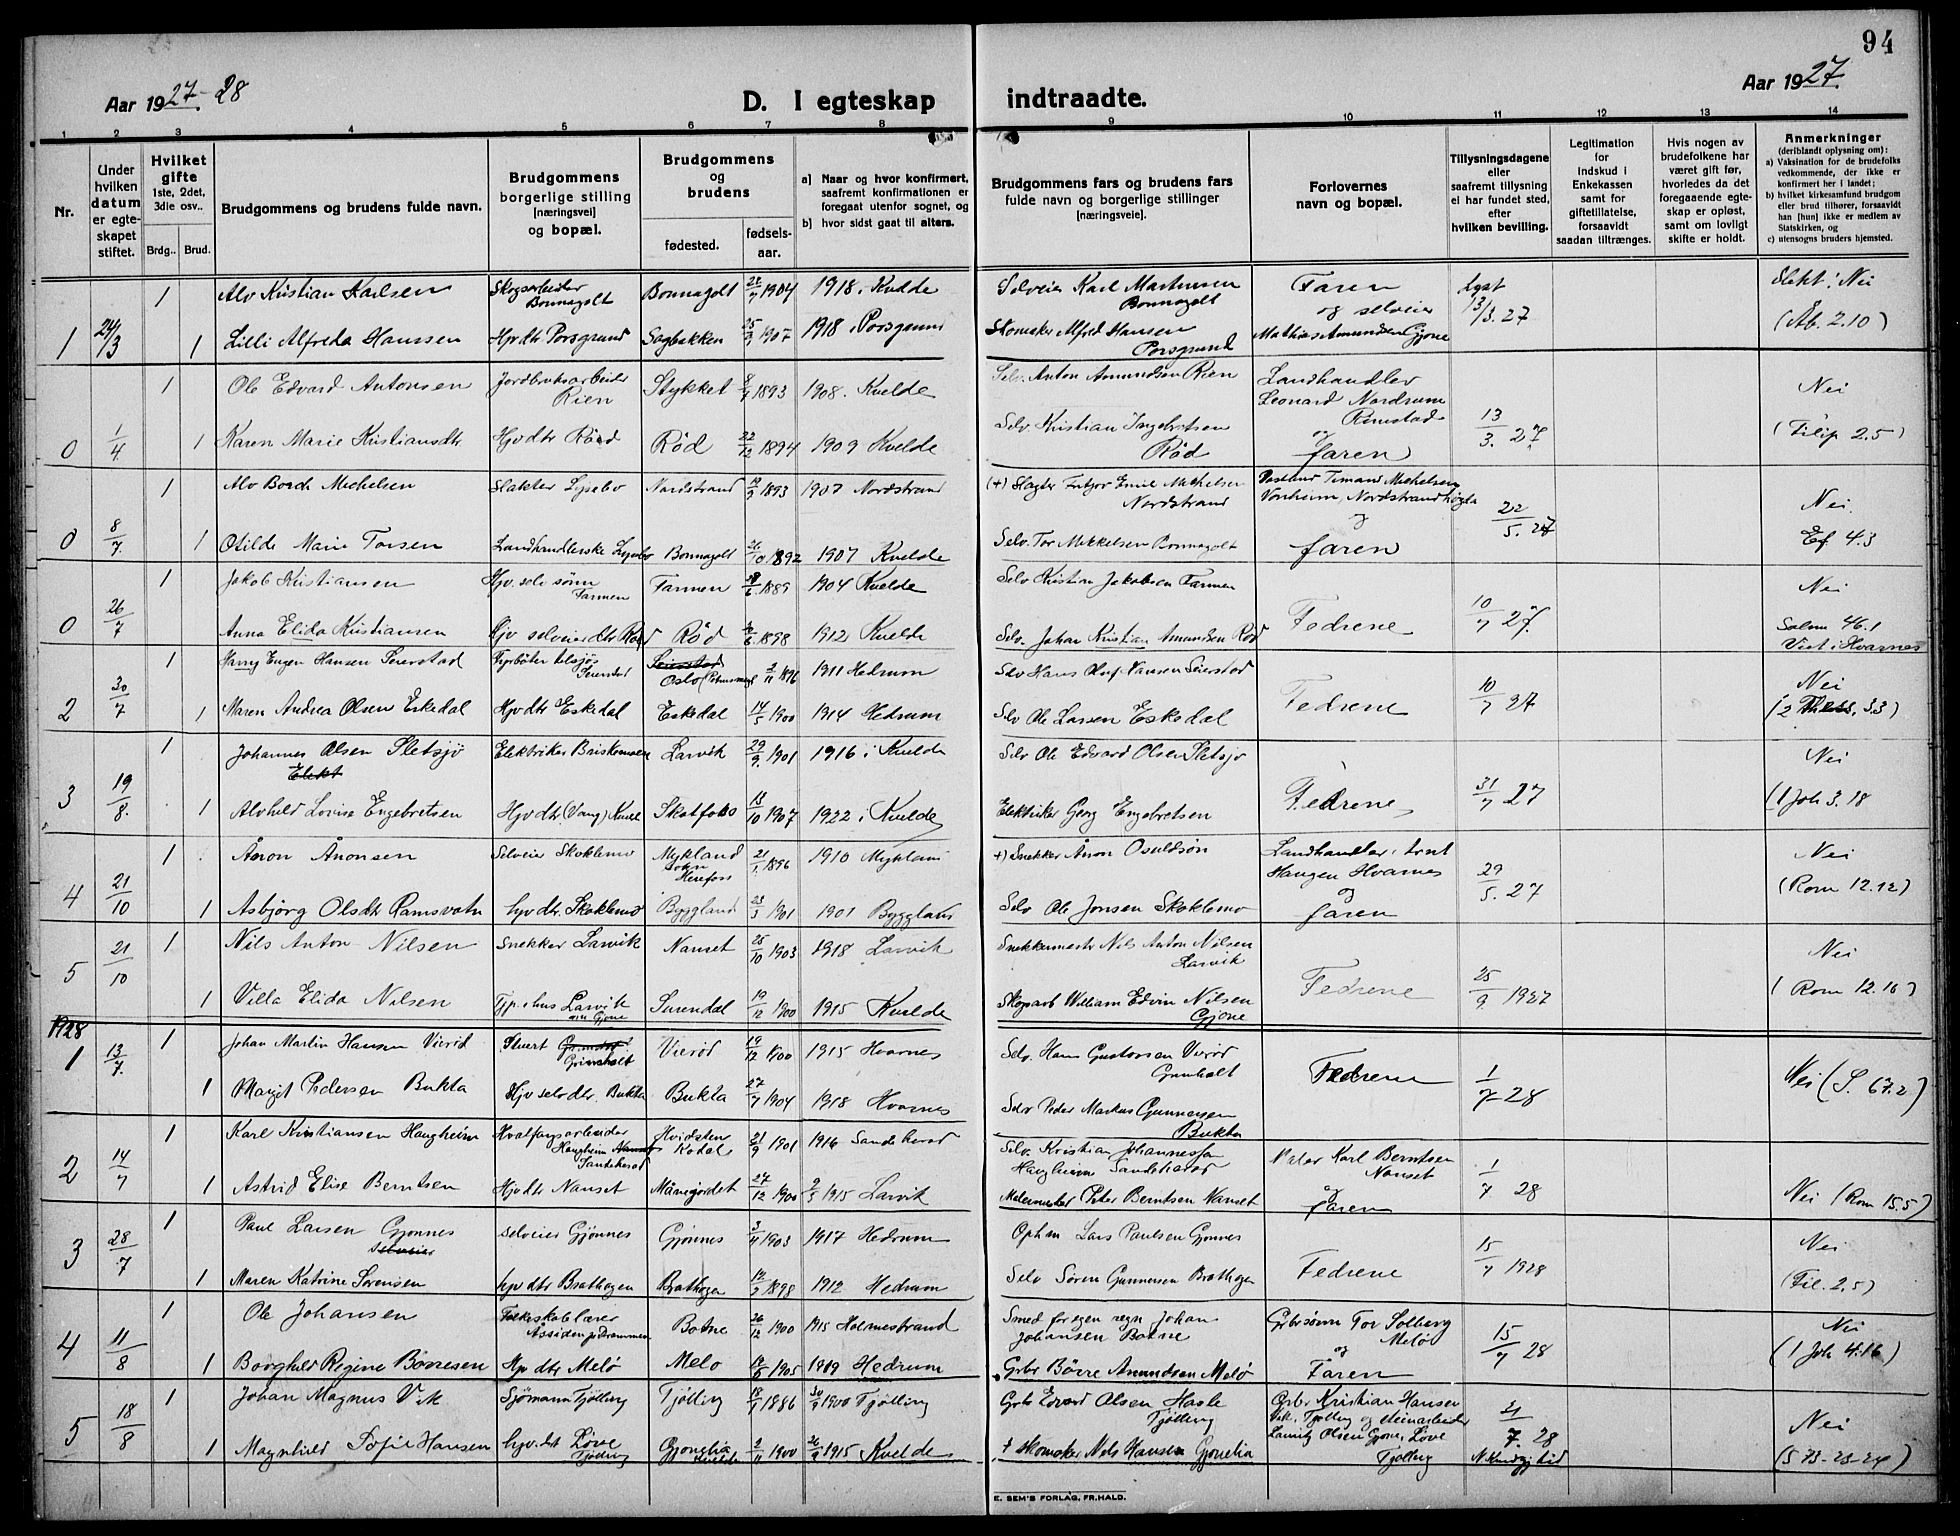 94
Aar 1927-28
D. I egteskap
indtraadte.
Aar 1927.
1 2 3 4 5 6 7 8 9 10 11 12 13 14
Nr.
Under hvilken datum er egteskapet stiftet.
Hvilket gifte 1ste, 2det, 3die osv..
Brdg.. Brud.
Brudgommens og brudens fulde navn.
Brudgommens borgerlige stilling [næringsvei] og bopæl.
Brudgommens og brudens
fødested.
fødselsaar.
a) Naar og hvor konfirmert, saafremt konfirmationen er foregaat utenfor sognet, og
b) hvor sidst gaat til alters.
Brudgommens fars og brudens fars fulde navn og borgerlige stillinger [næringsvei].
Forlovernes navn og bopæl.
Tillysningsdagene eller saafremt tillysning ei har fundet sted, efter hvilken bevilling.
Legitimation for indskud i Enkekassen samt for giftetillatelse, forsaavidt saadan tiltrænges.
Hvis nogen av brudefolkene har været gift før, hvorledes da det foregaaende egteskap er opløst, samt om lovligt skifte er holdt.
Anmerkninger (deriblandt oplysning om):
a) Vaksination for de brudefolks vedkommende, der ikke er konfirmert her i landet;
b) hvilket kirkesamfund brudgom eller brud tilhører, forsaavidt han [hun] ikke er medlem av Statskirken, og
c) utensogns bruders hjemsted.
1 Alv Kristian Karlsen Skogsarbeider Bonnagolt Bonnagolt 1904 1918 i Kvelde Selveier Karl Martinsen Bonnagolt Faren og selveier lyst 13/3. 27 Slekt: Nei
1 24/3 1 Lilli Alfreda Hanssen Hjv dtr Porsgrund Sagbakken 1907 1918 i Porsgrund Skomaker Alfred Hansen Porsgrund Mathias Amundsen Gjone (Åb. 2.10)
1 Ole Edvard Antonsen Jordbruksarbeider Rien Stykket 1893 1908. Kvelde Selv. Anton Amundsen Rien Landhandler Leonard Nordrum Rimstad Nei
0 1/4 1 Karen Marie Kristiansdtr Hjv dtr Röd Röd 22/12 1894 1909 Kvelde Selv Kristian Ingebretsen Röd og faren 13/3. 27 (Filip 2.5)
1 Alv Michelsen Slakter Nordstrand 1893 1907 Nordstrand (+) Slagter Emil Michelsen Nordstrand Michelsen Nei.
0 8/7. 1 Otilde Marie Torsen Landhandlerske Bonnagolt 1892 1907 Kvelde Selv. Tor Mikkelsen Bonnagolt og faren 22/5. 27 Ef. 4.3
1 Jakob Kristiansen Hjv. selv sönn Farmen Farmen 1889 1904 Kvelde Selv Kristian Jakobsen Farmen Nei
0 26/7 Anna Elida Kristiansen Hjv selveier dtr Röd Röd 1898 1912 Kvelde Selv. Johan Kristian Amundsen Röd Fedrene 10/7 27. Salm 46.1 Viet i Hvarnes
1 Harry Eugen Hansen Seierstad Seierstad Oslo 1896 1911 Hedrum Selv Hans Oluf Hansen Seierstad Nei
2 30/7 1 Maren Andrea Olsen Eskedal Hjv dtr Eskedal Eskedal 14/5 1900 1914 Hedrum Selv Ole Larsen Eskedal Fedrene 10/7 27 (2 Thess. 3.3)
1 Johannes Olsen Sletsjö Elekt Elektriker Larvik 29/9 1901 1916 i Kvelde Selv Ole Edvard Olsen Sletsjö Nei
3 19/8. 1 Alvhild Lovise Engebretsen Hjv dtr (Vang) Kvelde Skotfoss 13/10 1907 1922 i Kvelde Elektriker Georg Engebretsen Fedrene 31/7 27 (1 Joh 3.18
1 Ånon Ånonsen Selveier Skoklemo Mykland sokn Herefoss 21/1. 1896 1910 Mykland +) Snekker Ånon Osuldsön Landhandler Haugen Hvarnes Nei
4 21/10 1 Asbjörg Olsdtr Ramsvatn hjv dtr. Skoklemo Byggland 1901 1901 Bygglan Selv Ole Jonsen Skoklemo og faren 29/5. 27 (Rom 12.12)
5 21/10 1 Nils Anton Nilsen Snekker Larvik Nanset 25/10 1903 1918 Larvik Snekkermestr Nils Anton Nilsen Larvik Nei
1 Villa Elida Nilsen Tjp. i hus Larvik Surendal 19/12 1900 1915 Kvelde Skogsarb William Edvin Nilsen Gjone Fedrene 25/9 1927 (Rom 12.16)
1928
1 13/7. 1 Johan Martin Hansen Vieröd Grimholt Vieröd 19/12 1900 1915 Hvarnes Selv. Hans Gustavsen Vieröd Grimholt Fedrene 1/7-28 Nei (S. 67.2)
1 Margit Pedersen Bukta Hjv selv dtr. Bukta Bukta 27/7 1904 1918 Hvarnes Selv Peder Markus Gunnersen Bukta
1 Karl Kristiansen Haugheim Hvalfangstarbeider Haugheim Sandeherad Hvidsten Kodal 21/9 1901 1916 Sandeherad Selv. Kristian Johannessen Haugheim Sandeherad Maler Karl Berntsen Nanset
2 14/7 1 Astrid Elise Berntsen Hjv dtr Nanset Månejordet 27/12 1900 1915 Larvik Malermester Peter Berntsen Nanset og faren 1/7 28 Nei (Rom 15.5)
3 28/7 1 Paul Larsen Gjönnes Selveier selveier Gjönnes Gjönnes 1903 1917 Hedrum Lars Paulsen Gjönnes Nei
1 Maren Katrine Sørensen hjv dtr Brathagen Brathagen 1898 1912 Hedrum Selv Sören Gunnersen Brathagen Fedrene 15/7 1928 (Fil. 2.5)
1 Ole Johansen Folkeskolelærer Åssiden pr Drammen Botne 26/12 1900 1915 Holmestrand Smed for egen regn Johan Johansen Botne Grbr sönn Tor Solberg Melö Nei
4 11/8 1 Borghild Regine Börresen Hjv dtr Melö Melö 1905 1919 Hedrum Grbr Börre Amundsen Melö og Faren 15/7 28 (1 Joh 4.16)
1 Johan Magnus Vik Sjömann Tjölling Tjölling 1886 1900 Tjölling Grb Edvard Olsen Hasle Tjölling Grbr Kristian Hansen Vik, Tjölling og steinarbeider
5 18/8 1 Magnhild Sofie Hansen hjv. dtr Löve Tjölling Gjonelia Kvelde 1900 1915 Kvelde + skomaker Nils Hansen Gjonelia Olsen Gjone, Löve Tjölling 21/7. 28 Nei (S 73-23-24)
E. SEM'S FORLAG, FR.HALD.